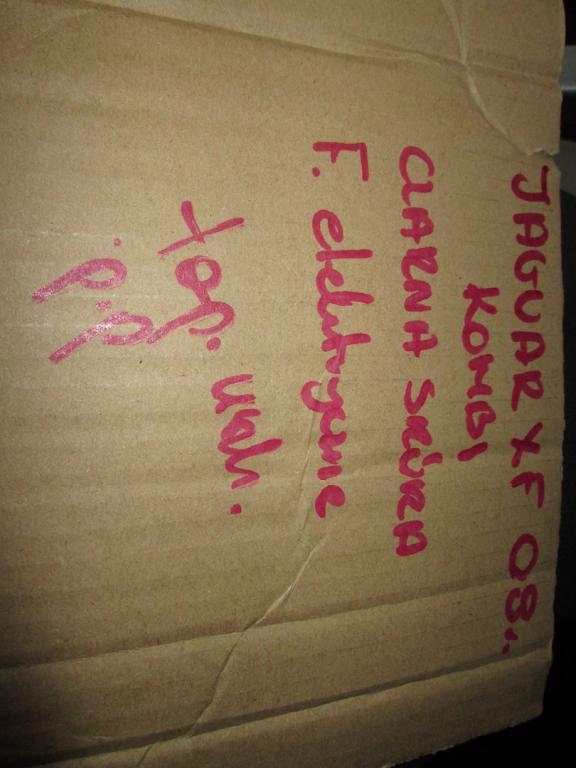 JAGUAR XF 08..
KOMBI
CZARNA SKÓRA
F. elektryczne
tap. uszk.
p.p